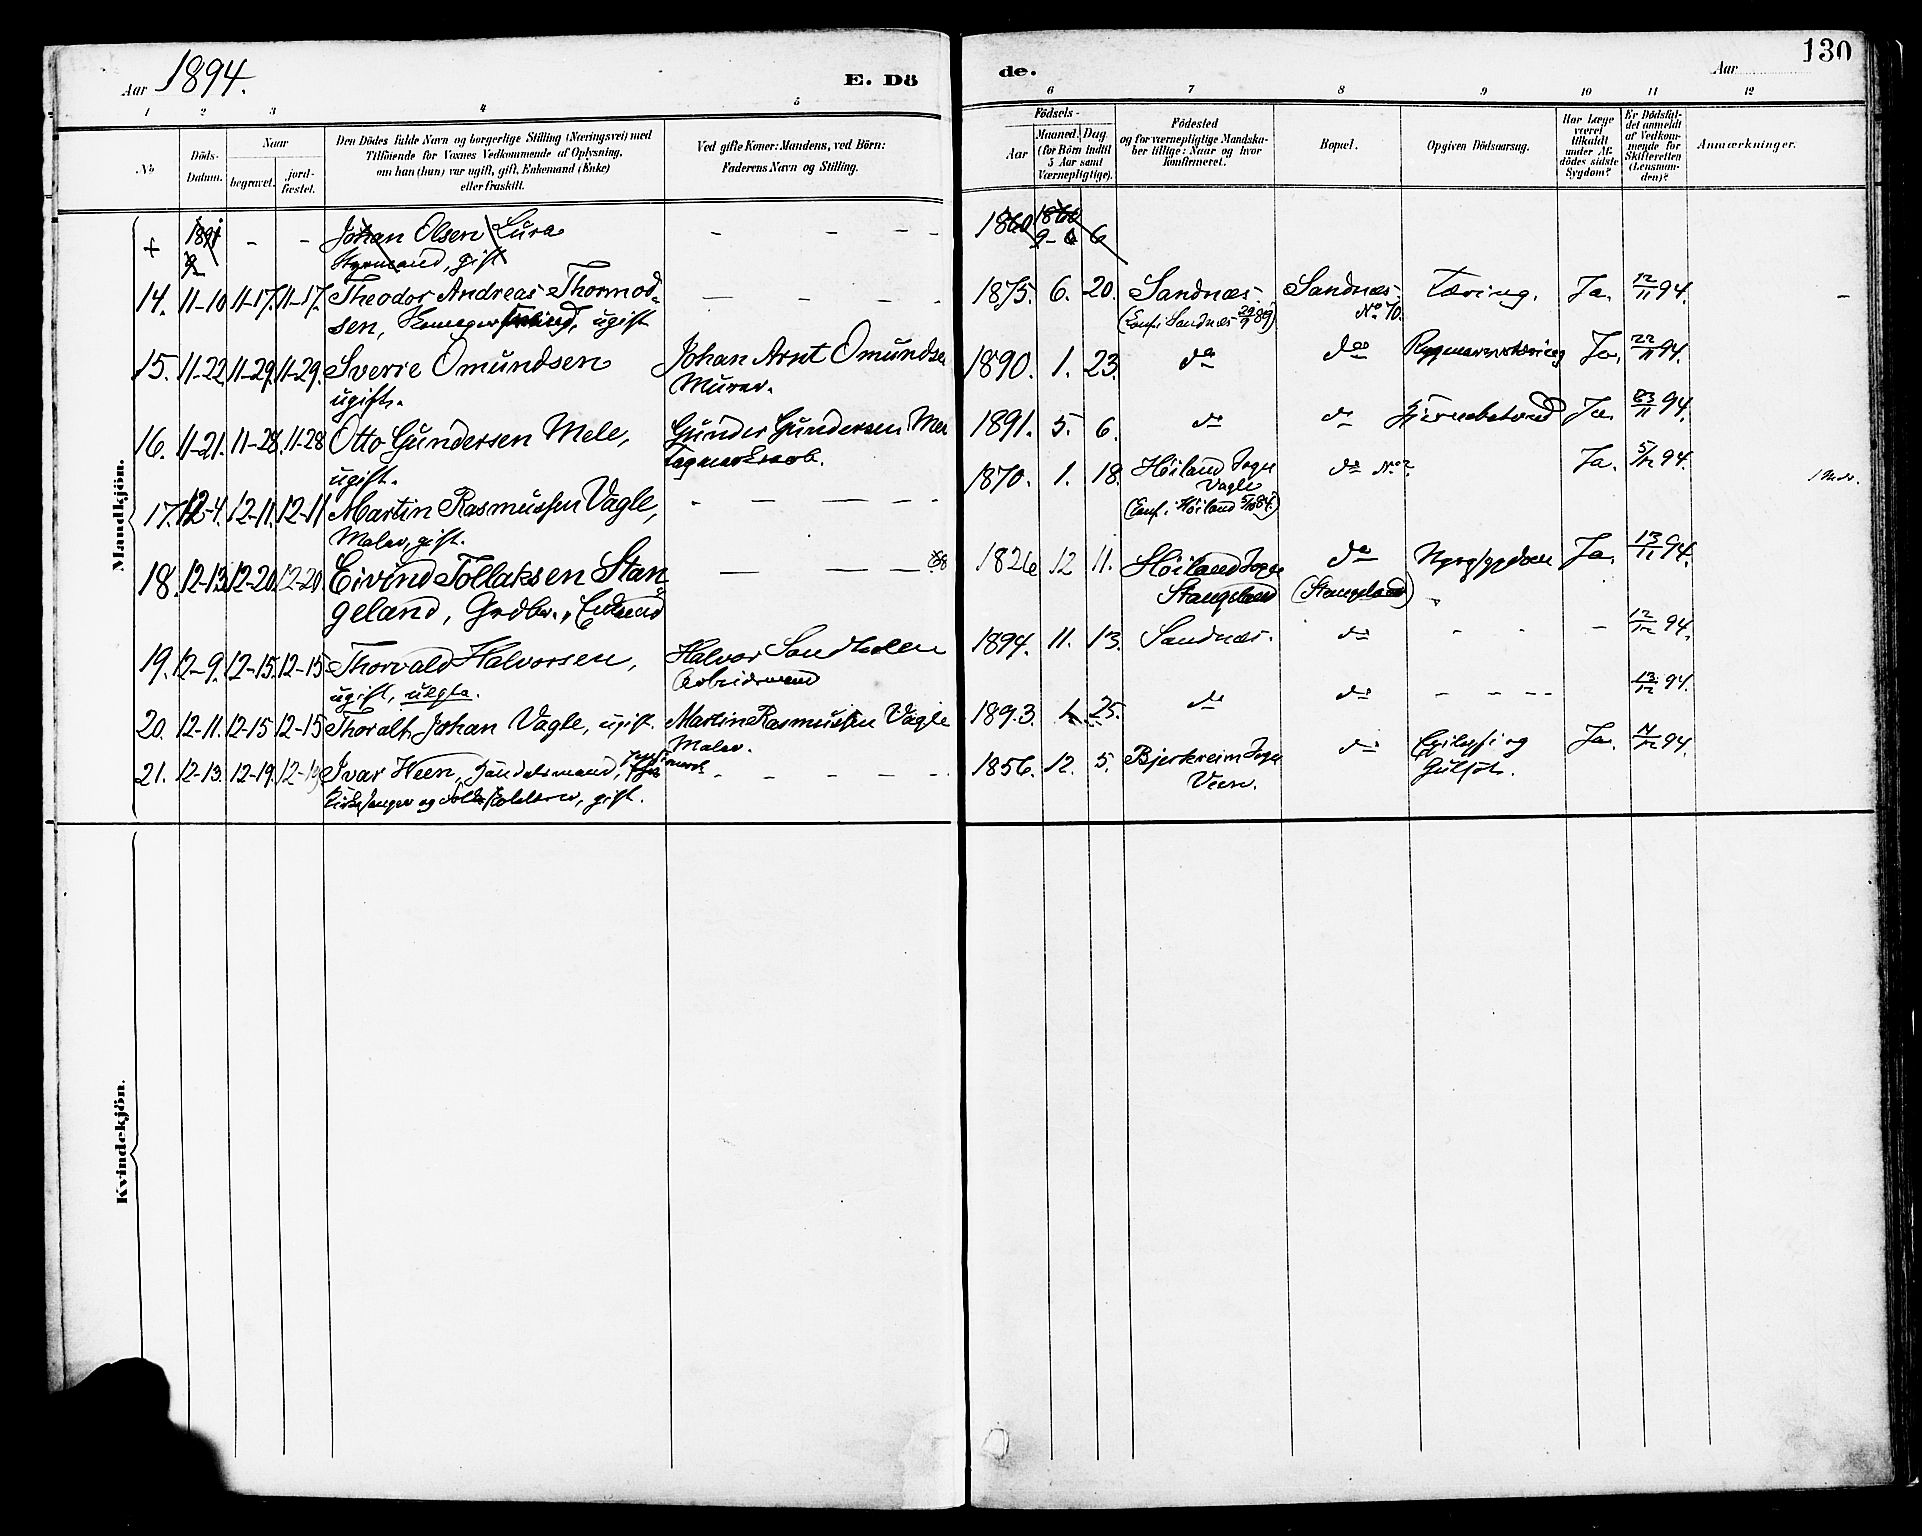 Aar 1894.
E. Dö
de.
Aar
130
1 2 3 4 5
6 7 8 9 10 11 12
No
Döds-
Datum.
Naar
begravet.
jord-
fæstet.
Den Dödes fulde Navn og borgerlige Stilling (Næringsvei) med
Tilföiende for Voxnes Vedkommende af Oplysning,
om han (hun) var ugift, gift, Enkemand (Enke)
eller fraskilt.
Ved gifte Koner: Mandens, ved Börn:
Faderens Navn og Stilling.
Födsels-
Aar
Maaned. Dag.
(for Börn indtil
5 Aar samt
Værnepligtige).
Födested
og for værnepligtige Mandska-
ber tillige: Naar og hvor
konfirmeret.
Bopæl.
Opgiven Dödsaarsag.
Har Læge
været
tilkaldt
under Af-
dödes sidste
Sygdom?
Er Dödsfal-
det anmeldt
af Vedkom-
mende for
Skifteretten
(Lensman-
den)?
Anmærkninger.
Mandkjön.
+ 1891 - - Johan Olsen Lura - - - - 1860 1860
9- 6 6
Styrmand, gift
14. 11-10 11-17. 11-17. Theodor Andreas Thormod- — - - - 1875. 6. 20. Sandnæs. Sandnæs. Tæring. Ja. 12/11 94. -
sen, ugift (Conf. i Sandnæs 29/9 89) No 70.
15. 11-22. 11-29. 11-29. Sverre Omundsen Johan Arnt Omundse 1890. 1. 23. do do Ja. 22/11 94.
ugift. Murer.
16. 11-21. 11-28. 11-28 Otto Gundersen Mele, Gunder Gundersen Mele 1891. 5. 6. do do Ja. 23/11 94.
ugift.
17. 12-4. 12-11. 12-11 Martin Rasmussen Vagle, - — — - - 1870. 1. 18. Höiland Sogn do No ? Ja. 5/12 94.
Vagle
Maler, gift. (Conf. i Höiland 5/10 84.)
18. 12-13. 12-20. 12-20 Eivind Tollaksen Stan- — — — 1826 12 11. Höiland Sogn do Ja. 13/12 94.
geland, Grdbr., Enkemd Stangeland (Stangeland)
19. 12-9. 12-15. 12-15 Thorvald Halvorsen, Halvor Sandholen 1894. 11. 13. Sandnæs. do - - - 12/12 94.
ugift, uægte. Arbeidsmand
20. 12-11. 12-15 12-15 Thoralf Johan Vagle, ugift. Martin Rasmussen Vagle 1893. 1. 25. do do - - - - 13/12 94.
Maler.
21. 12-13. 12-19. 12-19 Ivar Veen, Handelsmand, - - - - 1856. 12. 5. Bjerkreim Sogn do Epilepsi og Ja. 94.
Kirkesanger og Folkeskolelærer, gift. Veen. Gulsot.
Kvindekjön.